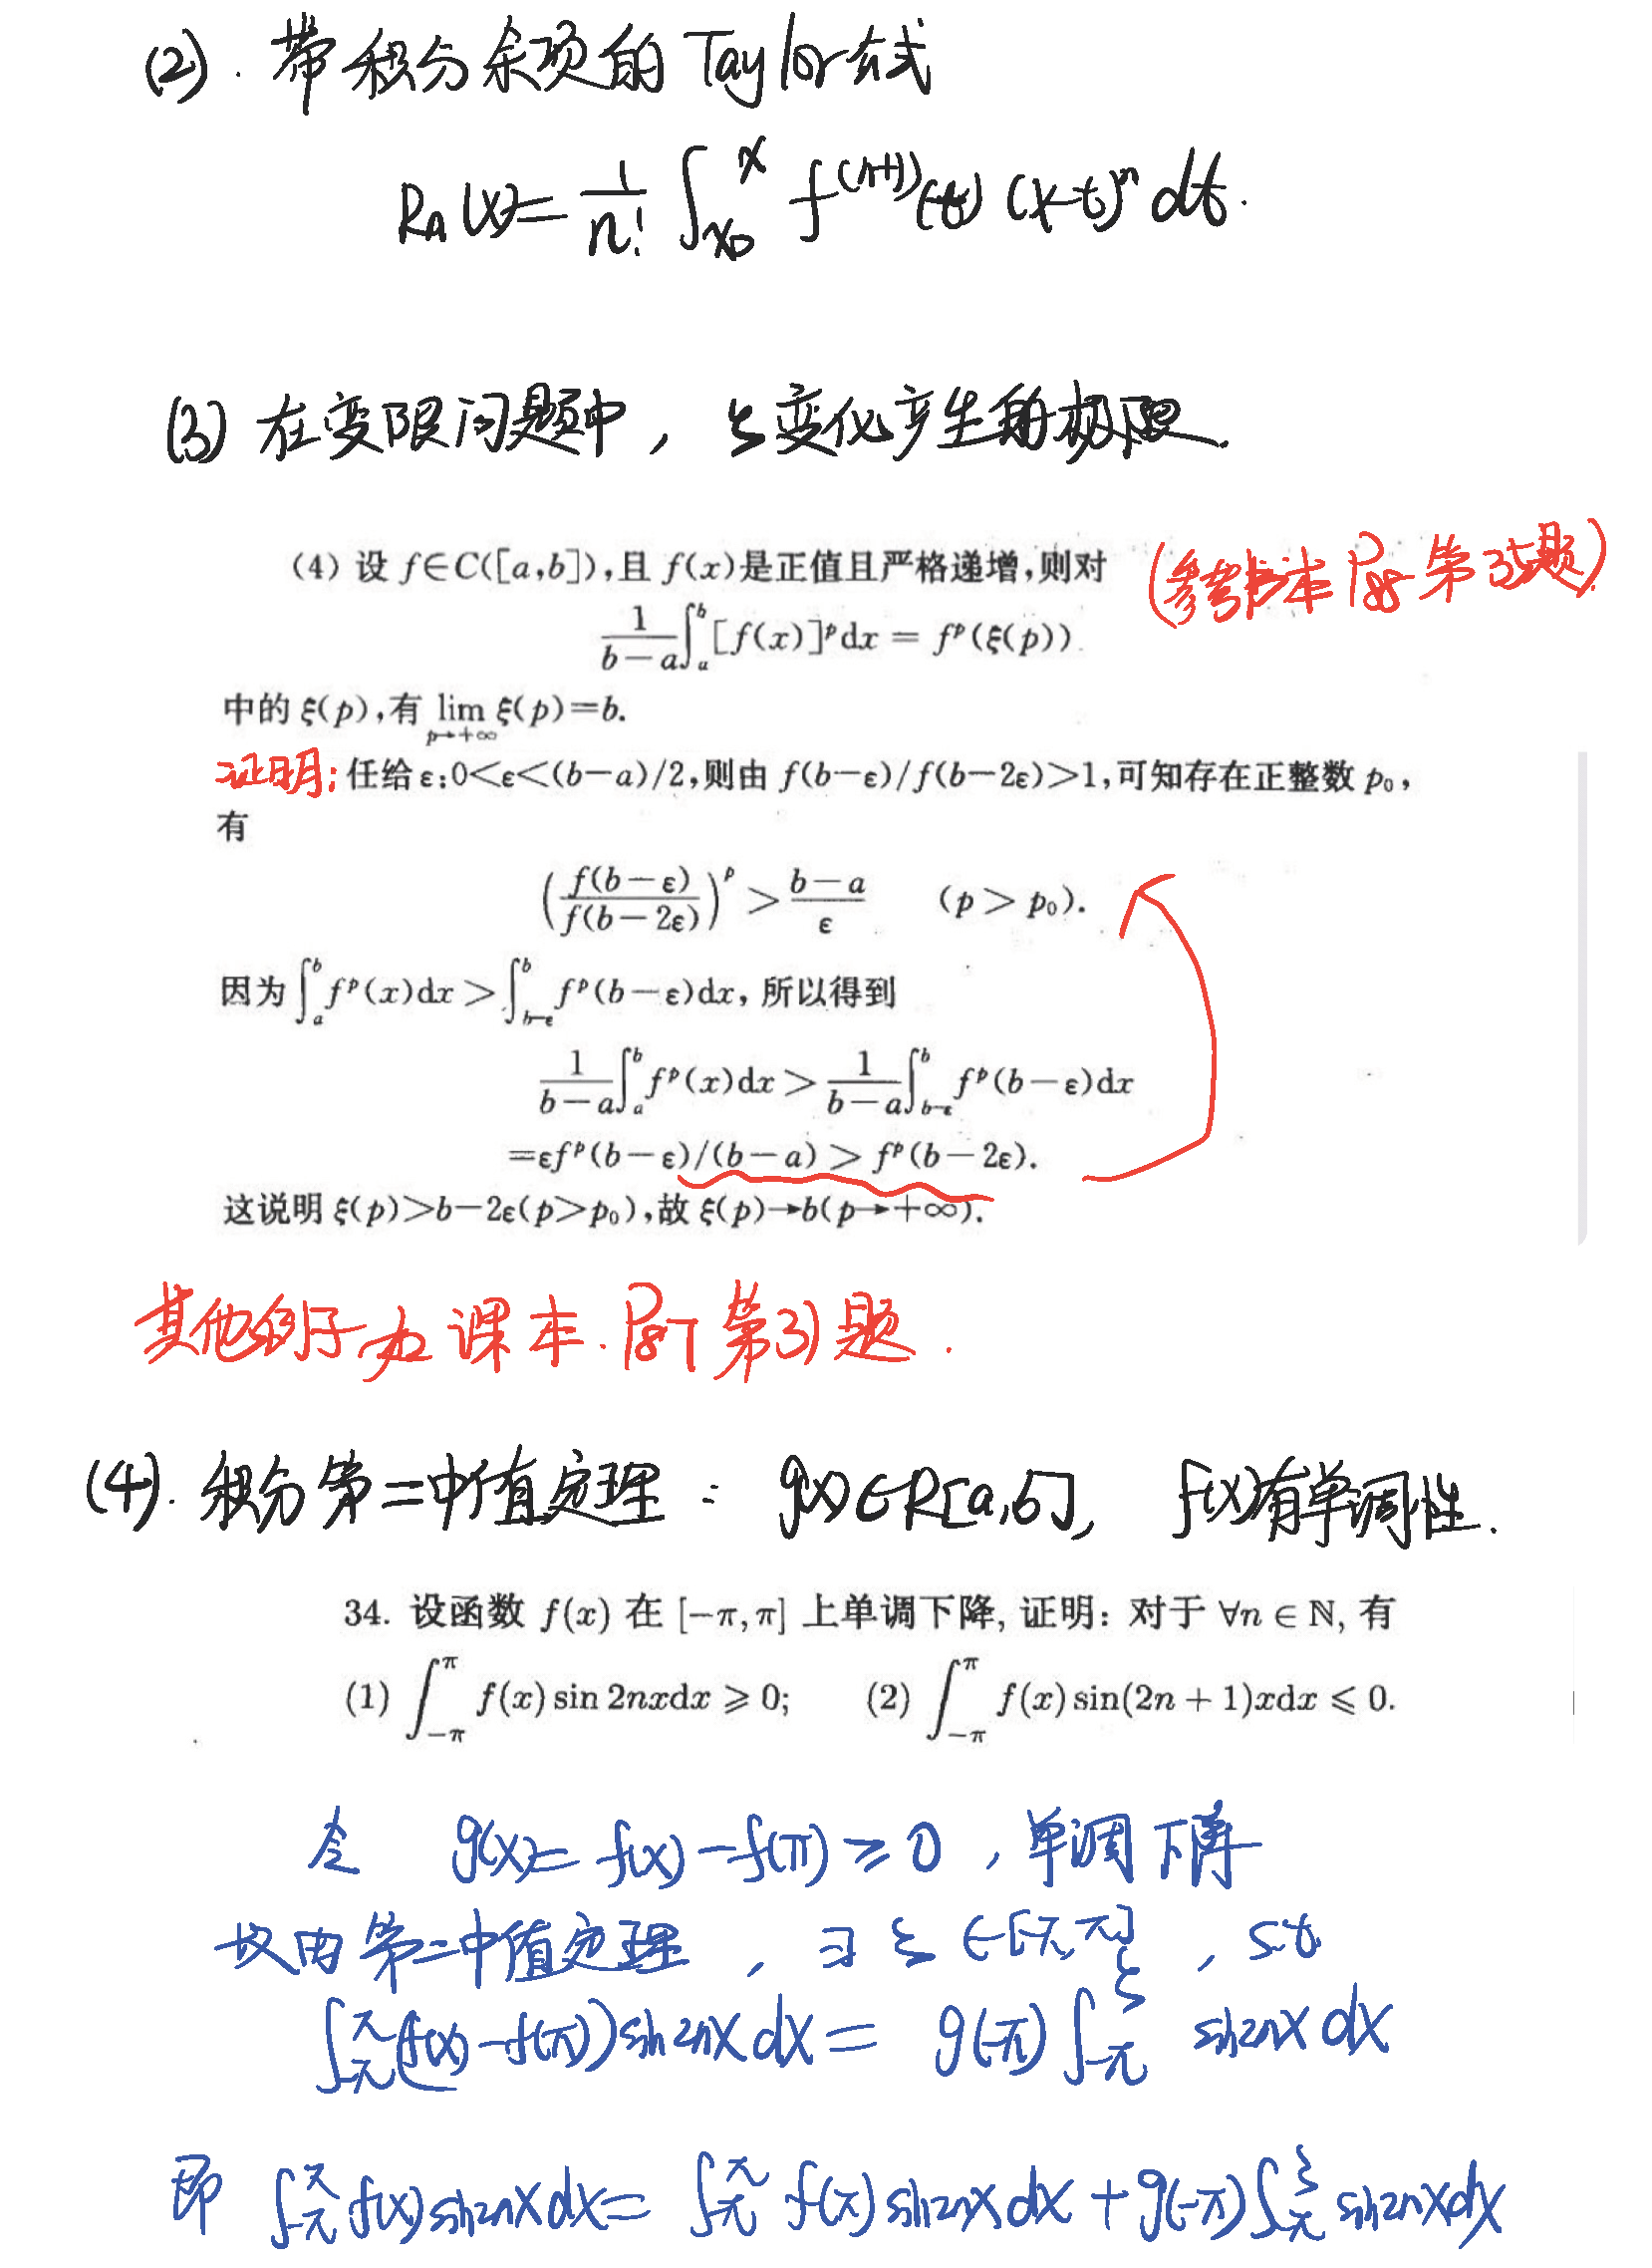 (2). 带积分余项的 Taylor公式
Rn(x)= 1/n! ∫_{x0}^{x} f^{(n+1)}(t) (x-t)^n dt.
(3) 在变限问题中, ξ变化产生的极限.
(4) 设 f∈C([a,b]),且 f(x)是正值且严格递增,则对
(参考书本 P88 第35题)
1/(b-a) ∫_a^b [f(x)]^p dx = f^p(ξ(p))
中的 ξ(p),有 lim_{p→+∞} ξ(p)=b.
证明: 任给 ε:0<ε<(b-a)/2,则由 f(b-ε)/f(b-2ε)>1,可知存在正整数 p₀,
有
(f(b-ε)/f(b-2ε))^p > (b-a)/ε (p>p₀).
因为 ∫_a^b f^p(x)dx > ∫_{b-ε}^b f^p(b-ε)dx, 所以得到
1/(b-a) ∫_a^b f^p(x)dx > 1/(b-a) ∫_{b-ε}^b f^p(b-ε)dx
=εf^p(b-ε)/(b-a) > f^p(b-2ε).
这说明 ξ(p)>b-2ε(p>p₀),故 ξ(p)→b(p→+∞).
其他例子为课本. P87 第31题.
(4). 积分第二中值定理 : g(x)∈R[a,b], f(x)有单调性.
34. 设函数 f(x) 在 [-π,π] 上单调下降, 证明: 对于 ∀n∈N, 有
(1) ∫_{-π}^{π} f(x) sin 2nxdx ⩾ 0; (2) ∫_{-π}^{π} f(x) sin(2n+1)xdx ⩽ 0.
令 g(x)= f(x)-f(π) ≥ 0 , 单调下降
故由第二中值定理 , ∃ ξ∈[-π,π] , s.t
∫_{-π}^{π} (f(x)-f(π)) sin2nx dx = g(-π) ∫_{-π}^{ξ} sin2nx dx
即 ∫_{-π}^{π} f(x) sin2nx dx = ∫_{-π}^{π} f(π) sin2nx dx + g(-π) ∫_{-π}^{ξ} sin2nx dx